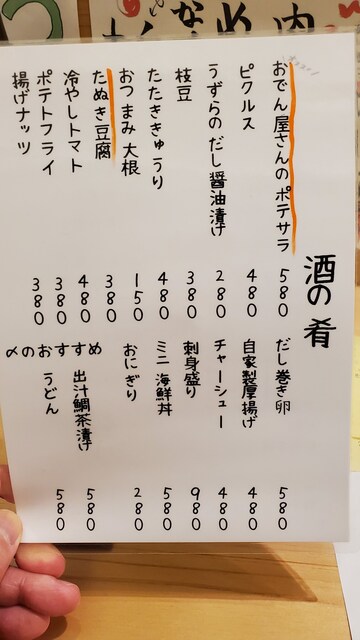 酒の肴
おでん屋さんのポテサラ 580
ピクルス 480
うずらのだし醤油漬け 280
枝豆 380
たたききゅうり 480
おつまみ大根 150
たぬき豆腐 380
冷やしトマト 480
ポテトフライ 380
揚げナッツ 380
だし巻き卵 580
自家製厚揚げ 480
チャーシュー 480
刺身盛り 980
ミニ海鮮丼 580
おにぎり 280
〆のおすすめ
出汁鯛茶漬け 580
うどん 580